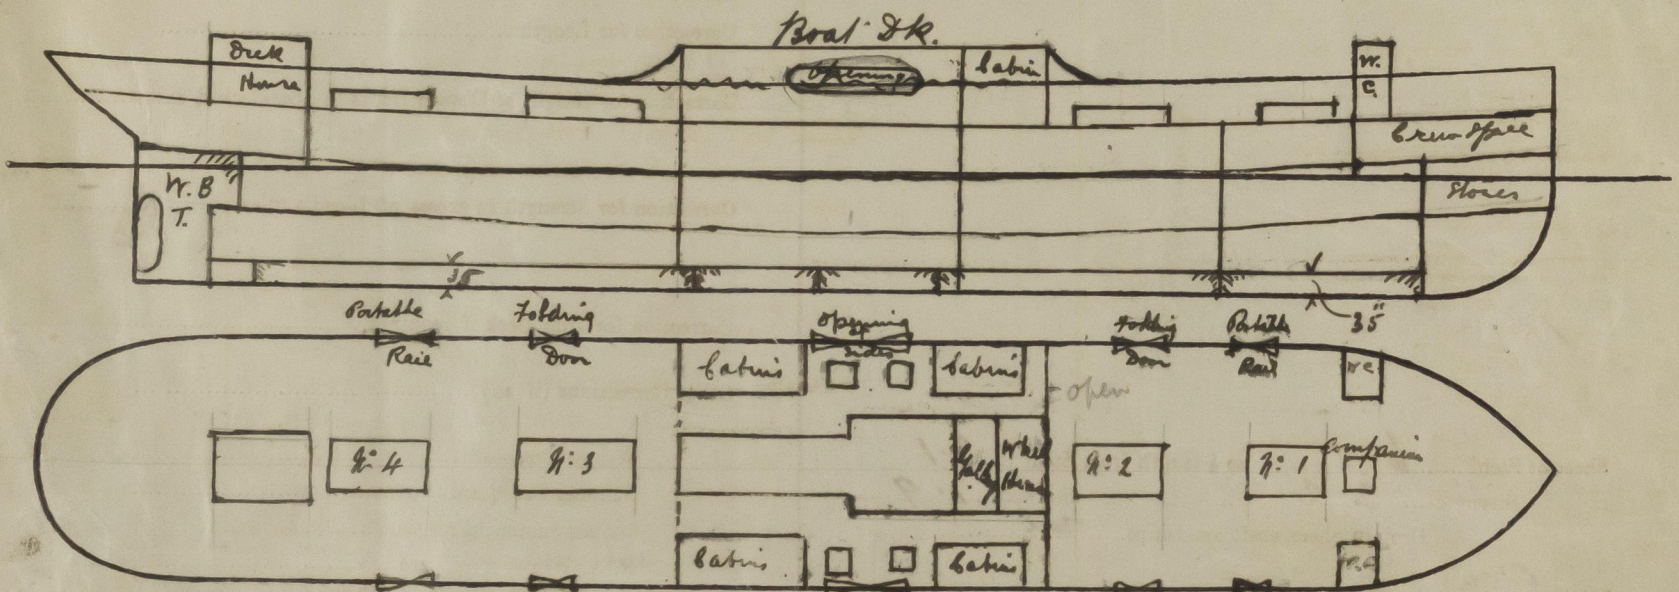 Boat Dk.
Deck
House
Opening
Cabin
W.
C.
Crew Space
W. B
T.
Stores
35
35"
Portable
Rail
Folding
Door
Opening
Sides
Folding
Door
Portable
Rail
Cabins
Cabins
W.C.
± open
Nº 4
Nº 3
Galley
Wheel
House
Nº 2
Nº 1
Companion
Cabins
Cabins
W.C.